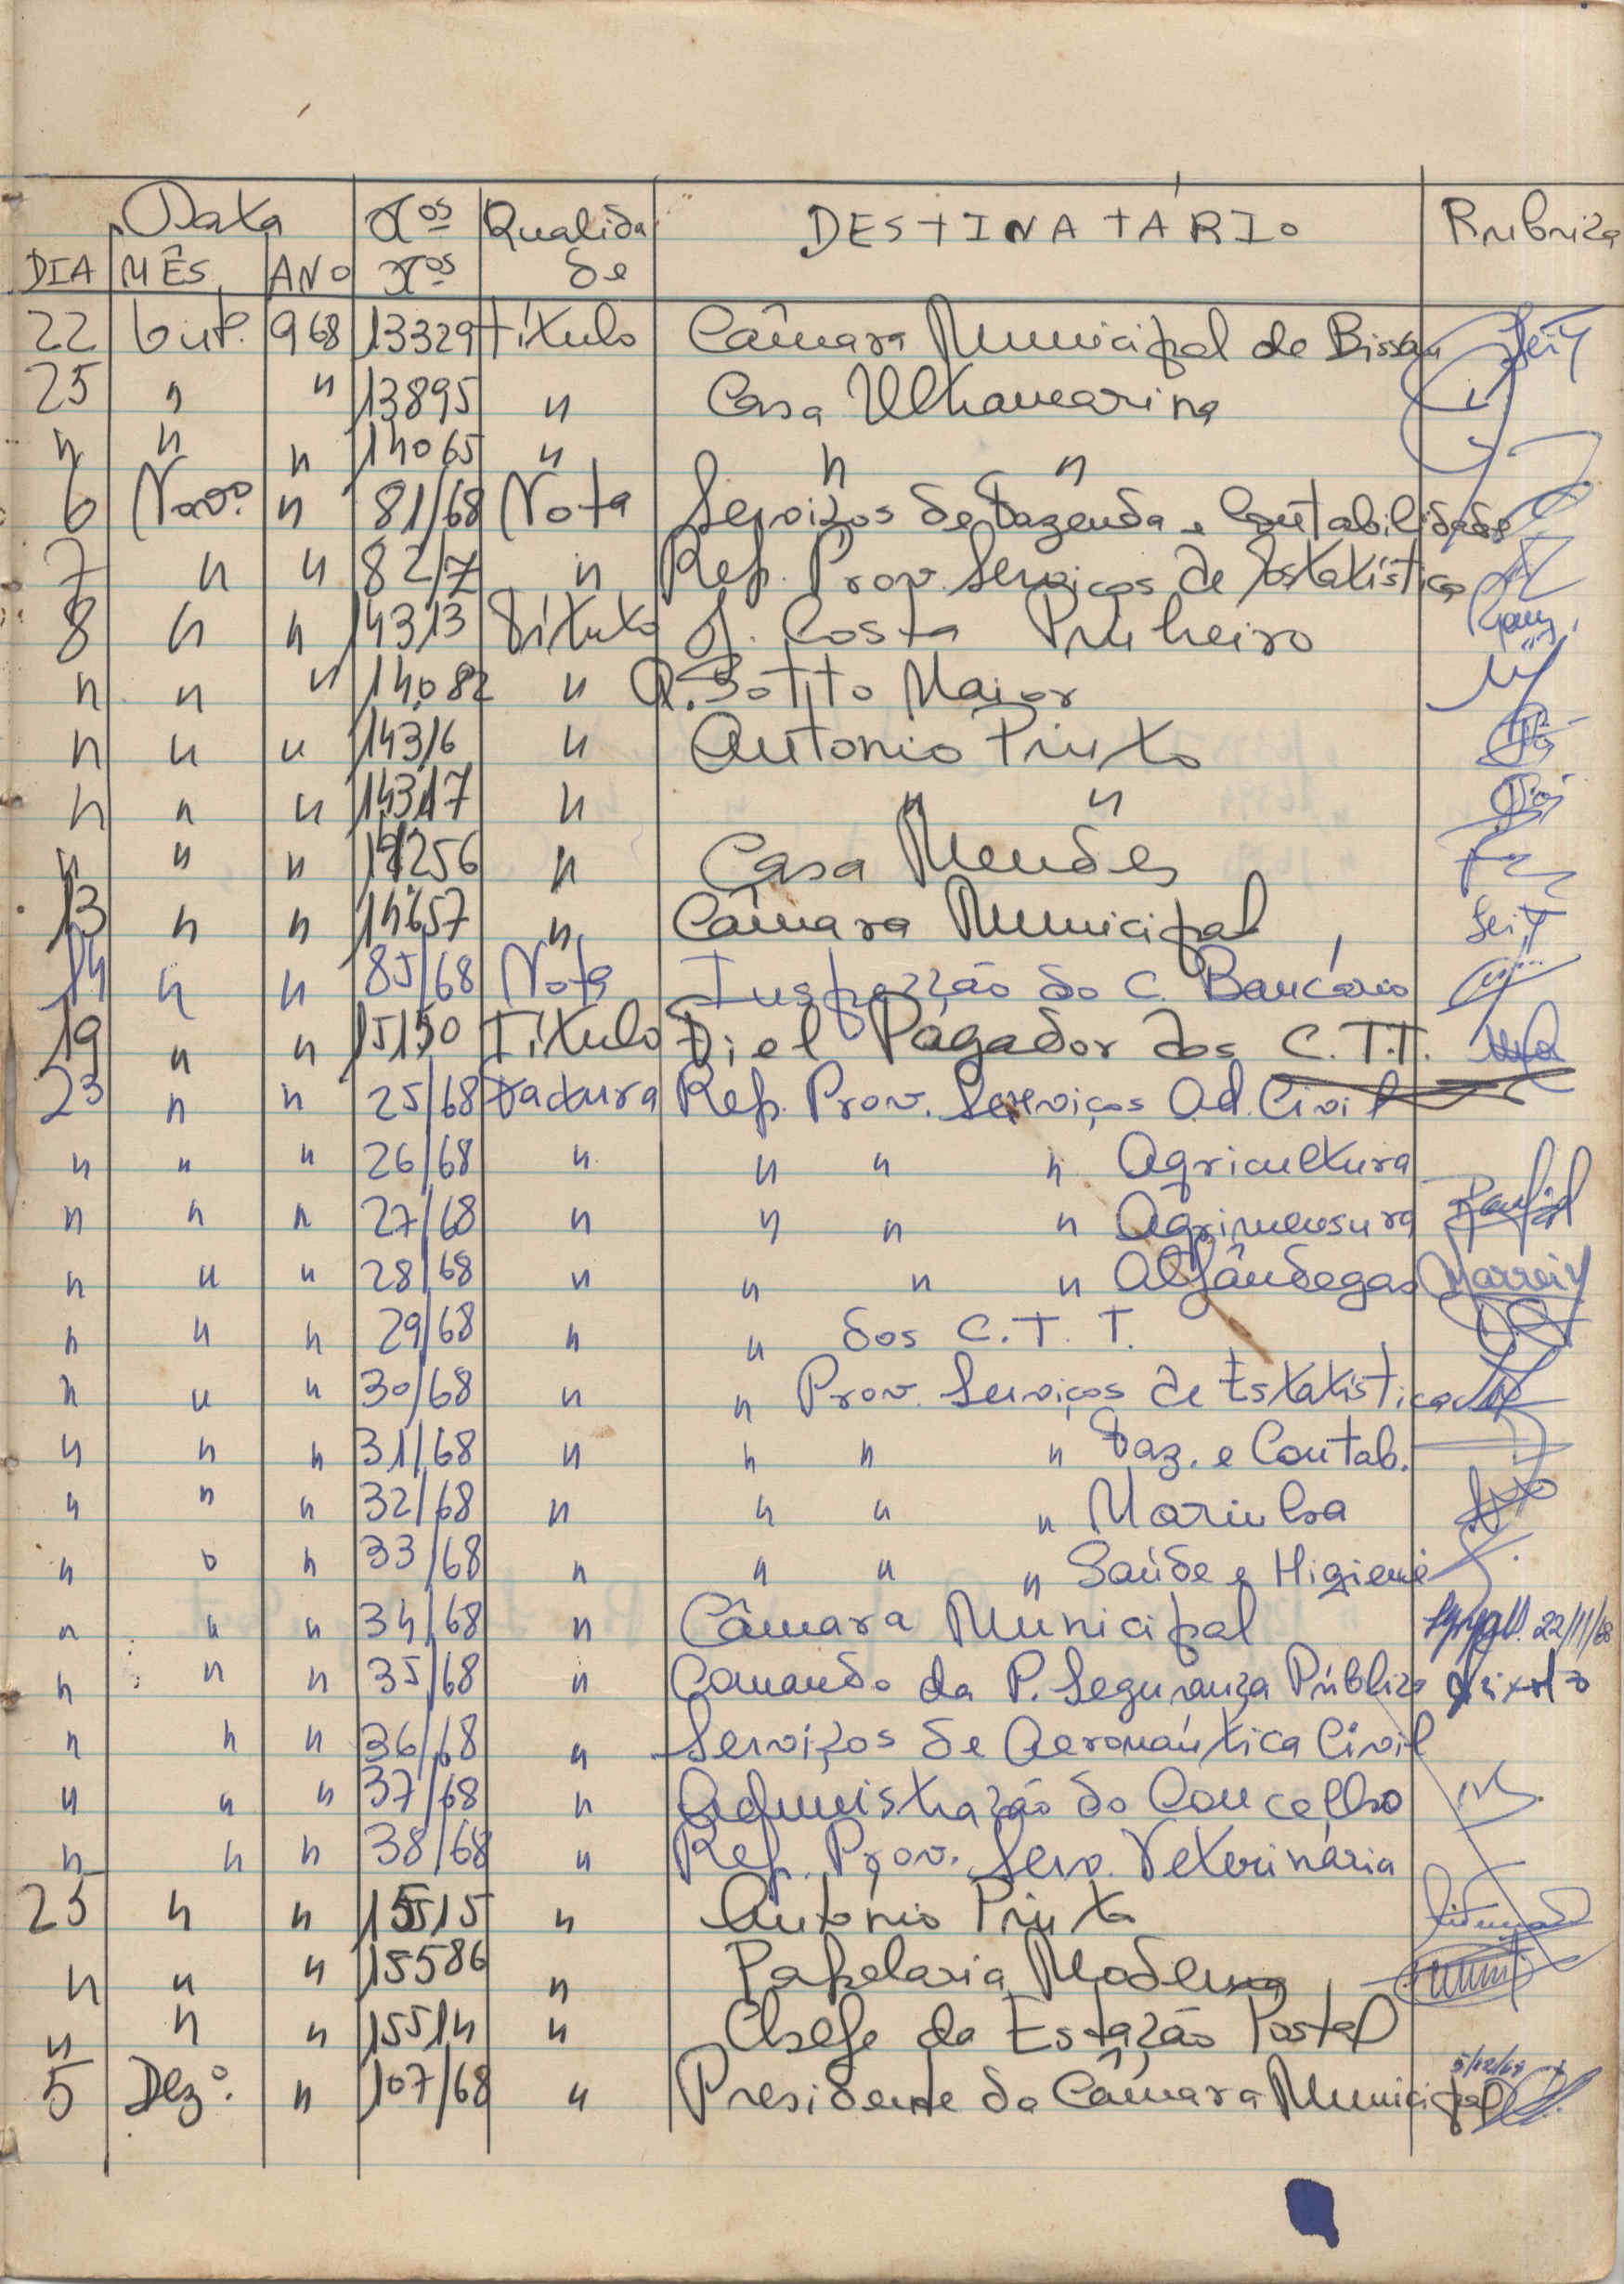 Data Nos Qualida DESTINATÁRIO Rubrica
DIA MÊS ANO Nos de
22 Outº. 968 13329 título Câmara Municipal de Bissau
25 " " 13895 " Casa Ultramarina
" " " 14065 " " "
6 Novº. " 81/68 Nota Serviços de Fazenda e Contabilidade
7 " " 82/7 " Rep. Prov. Serviços de Estatística
8 " " 14313 Título J. Costa Pinheiro
" " " 14082 " A. Sotto Maior
" " " 14316 " António Pinto
" " " 14317 " " "
" " " 14256 " Casa Mendes
13 " " 14657 " Câmara Municipal
14 " " 85/68 Nota Inspecção do C. Bancário
19 " " 15150 Título Fiel Pagador dos C.T.T.
23 " " 25/68 Factura Rep. Prov. Serviços Ad. Civil
" " " 26/68 " " " " Agricultura
" " " 27/68 " " " " Agrimensura
" " " 28/68 " " " " Alfândegas
" " " 29/68 " " dos C.T.T.
" " " 30/68 " " Prov. Serviços de Estatística
" " " 31/68 " " " " Faz. e Contab.
" " " 32/68 " " " " Marinha
" " " 33/68 " " " " Saúde e Higiene
" " " 34/68 " Câmara Municipal 22/11/68
" " " 35/68 " Comando da P. Segurança Pública
" " " 36/68 " Serviços de Aeronáutica Civil
" " " 37/68 " Administração do Concelho
" " " 38/68 " Rep. Prov. Serv. Veterinária
25 " " 15515 " António Pinto
" " " 15586 " Papelaria Moderna
" " " 15514 " Chefe da Estação Postal
5/12/68
5 Dezº. " 107/68 " Presidente da Câmara Municipal